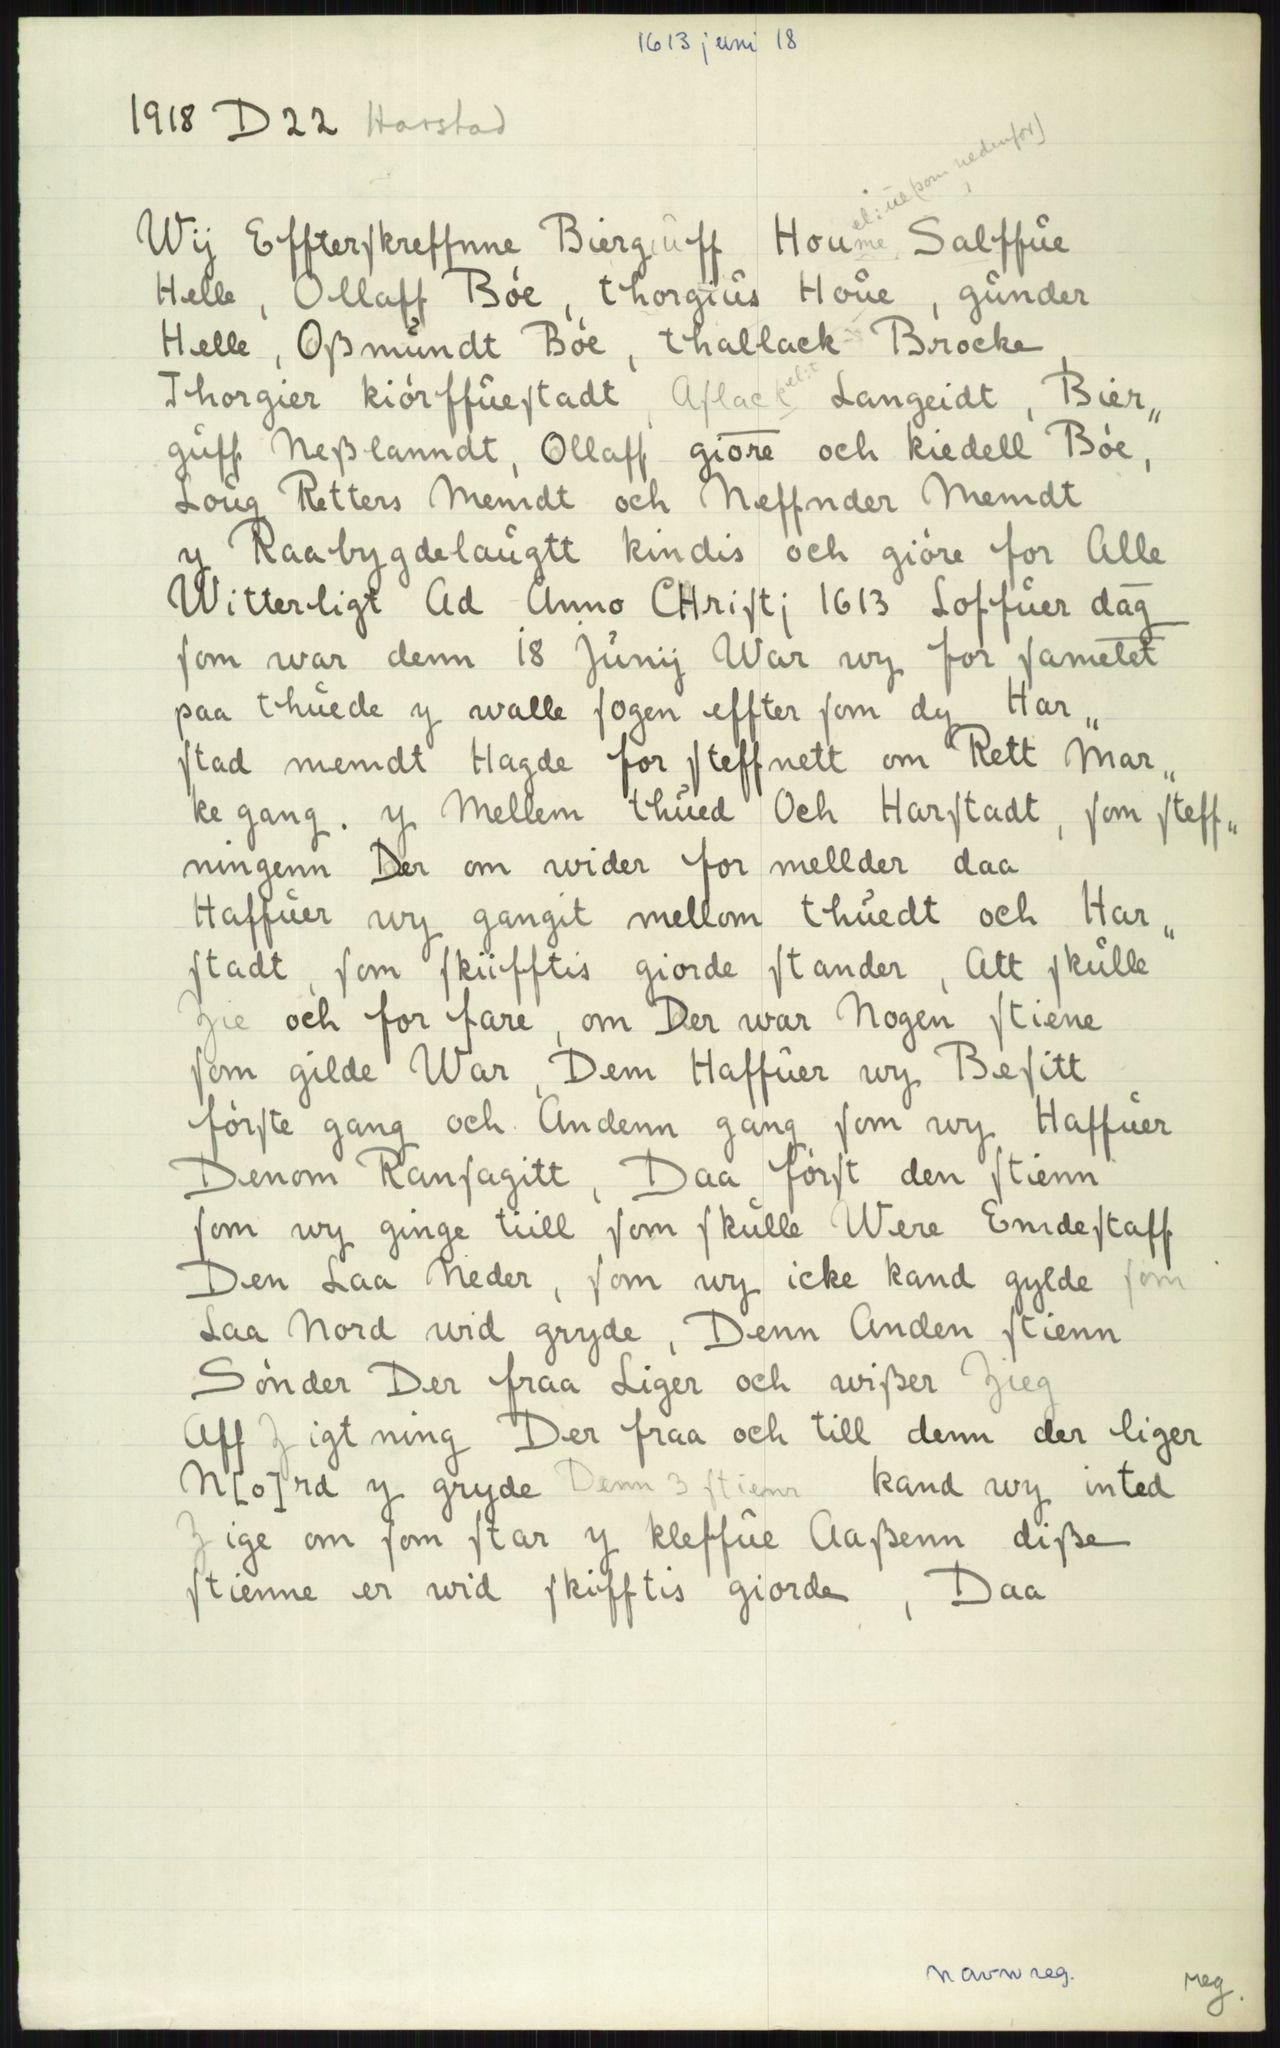 1613 juni 18
1918 D 22 Harstad
el: ue (som nedenfor)
Wij Effterſkreffnne Biergůff Houme Salffůe
Helle, Ollaff Bóe, thorgiůs Hoůe, gůnder
Helle, Oßmůndt Bóe, thallack Brocke,
Thorgier kiórffůeſtadt, Aſlack el: t Langeidt, Bier„
gůff Neßlanndt, Ollaff gióre och kiedell Bóe,
Loůg Retters Memdt och Neffnder Memdt
y Raabygdelaůgtt kindis och gióre for Alle
Witterligt Ad Anno CHriſtj 1613 Loffůer dag
ſom war denn 18 Jůnij War wy for ſametet
paa thůede y walle ſogen effter ſom dy Har„
ſtad memdt Hagde for ſteffnett om Rett Mar„
ke gang. y Mellem thůed Och Harſtadt, ſom ſteff„
ningenn Der om wider for mellder daa
Haffůer wy gangit mellom thůedt och Har„
ſtadt, ſom ſkiifftis giorde ſtander, Att ſkůlle
Zie och for fare, om Der war Nogen ſtiene
ſom gilde War, Dem Haffůer wy Beſitt
fórſte gang och Andenn gang ſom wy Haffůer
Denom Ranſagitt, Daa fórſt den ſtienn
ſom wy ginge tiill ſom ſkůlle Were Emdeſtaff
Den Laa Neder, ſom wy icke kand gylde ſom
Laa Nord wid gryde, Denn Anden ſtienn
Sónder Der fraa Liger och wißer Zieg
Aff Zigtning Der fraa och till denn der liger
N[o]rd y gryde Denn 3 ſtienn kand wy inted
Zige om ſom ſtar y kleffůe Aaßenn diße
ſtienne er wid ſkifftis giorde, Daa
navnreg.
reg.